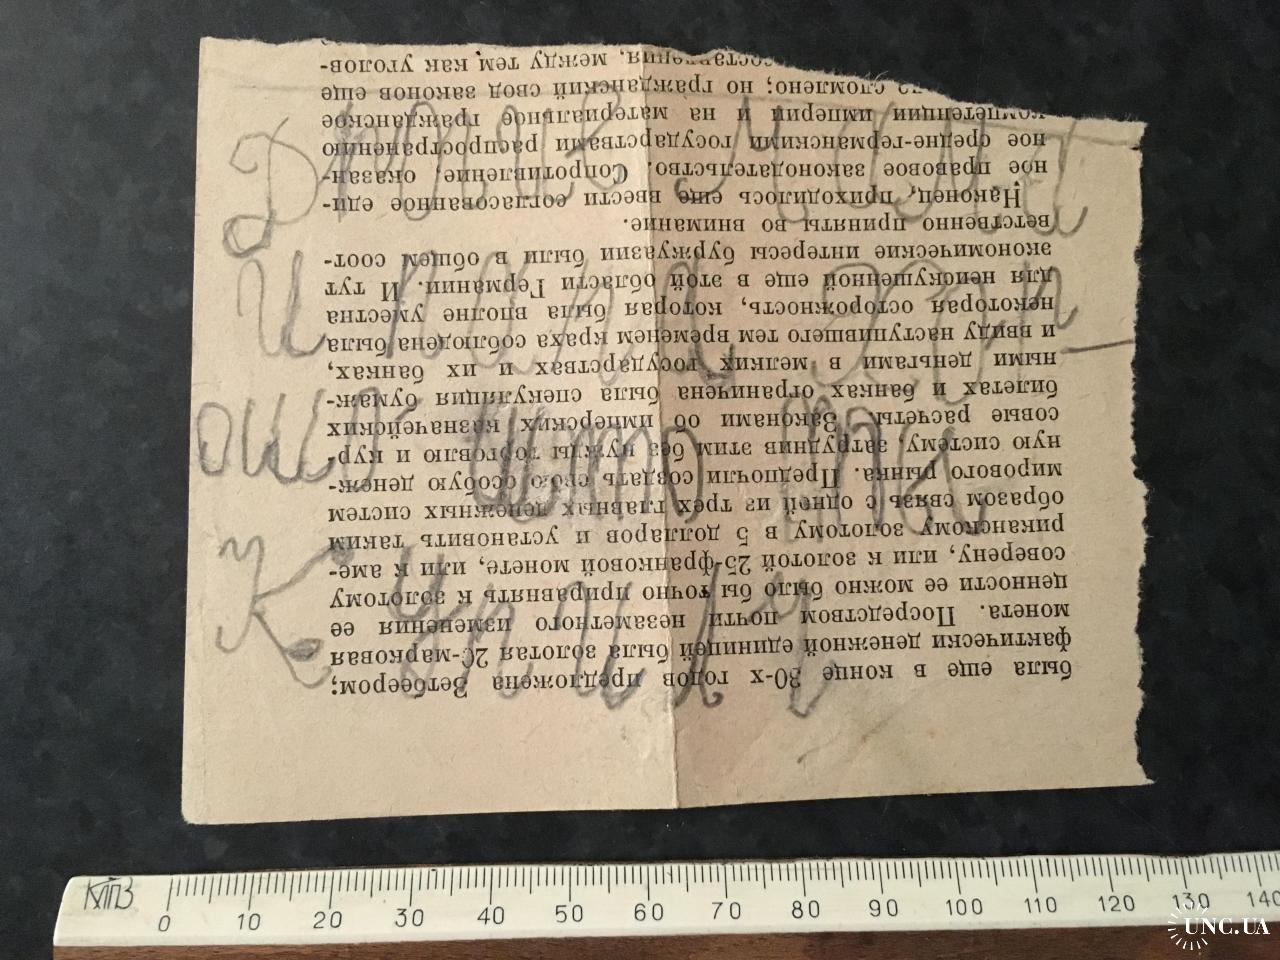 была еще в конце 30-х годов предложена Зетбеером;
фактически денежной единицей была золотая 20-марковая
монета. Посредством почти незаметного изменения ее
ценности ее можно было бы точно приравнять к золотому
соверену, или к золотой 25-франковой монете, или к аме-
риканскому золотому в 5 долларов и установить таким
образом связь с одной из трех главных денежных систем
мирового рынка. Предпочли создать свою особую денеж-
ную систему, затруднив этим без нужды торговлю и кур-
совые расчеты. Законами об имперских казначейских
билетах и банках ограничена была спекуляция бумаж-
ными деньгами в мелких государствах и их банках,
и ввиду наступившего тем временем краха соблюдена была
некоторая осторожность, которая была вполне уместна
для неискушенной еще в этой области Германии. И тут
экономические интересы буржуазии были в общем соот-
ветственно приняты во внимание.
Наконец, приходилось еще ввести согласованное еди-
ное правовое законодательство. Сопротивление, оказан-
ное средне-германскими государствами распространению
компетенции империи и на материальное гражданское
сломлено; но гражданский свод законов еще
между тем как уголов-
мама
и папа
что
К
КЛПВ
0 10 20 30 40 50 60 70 80 90 100 110 120 130 140
UNC.UA